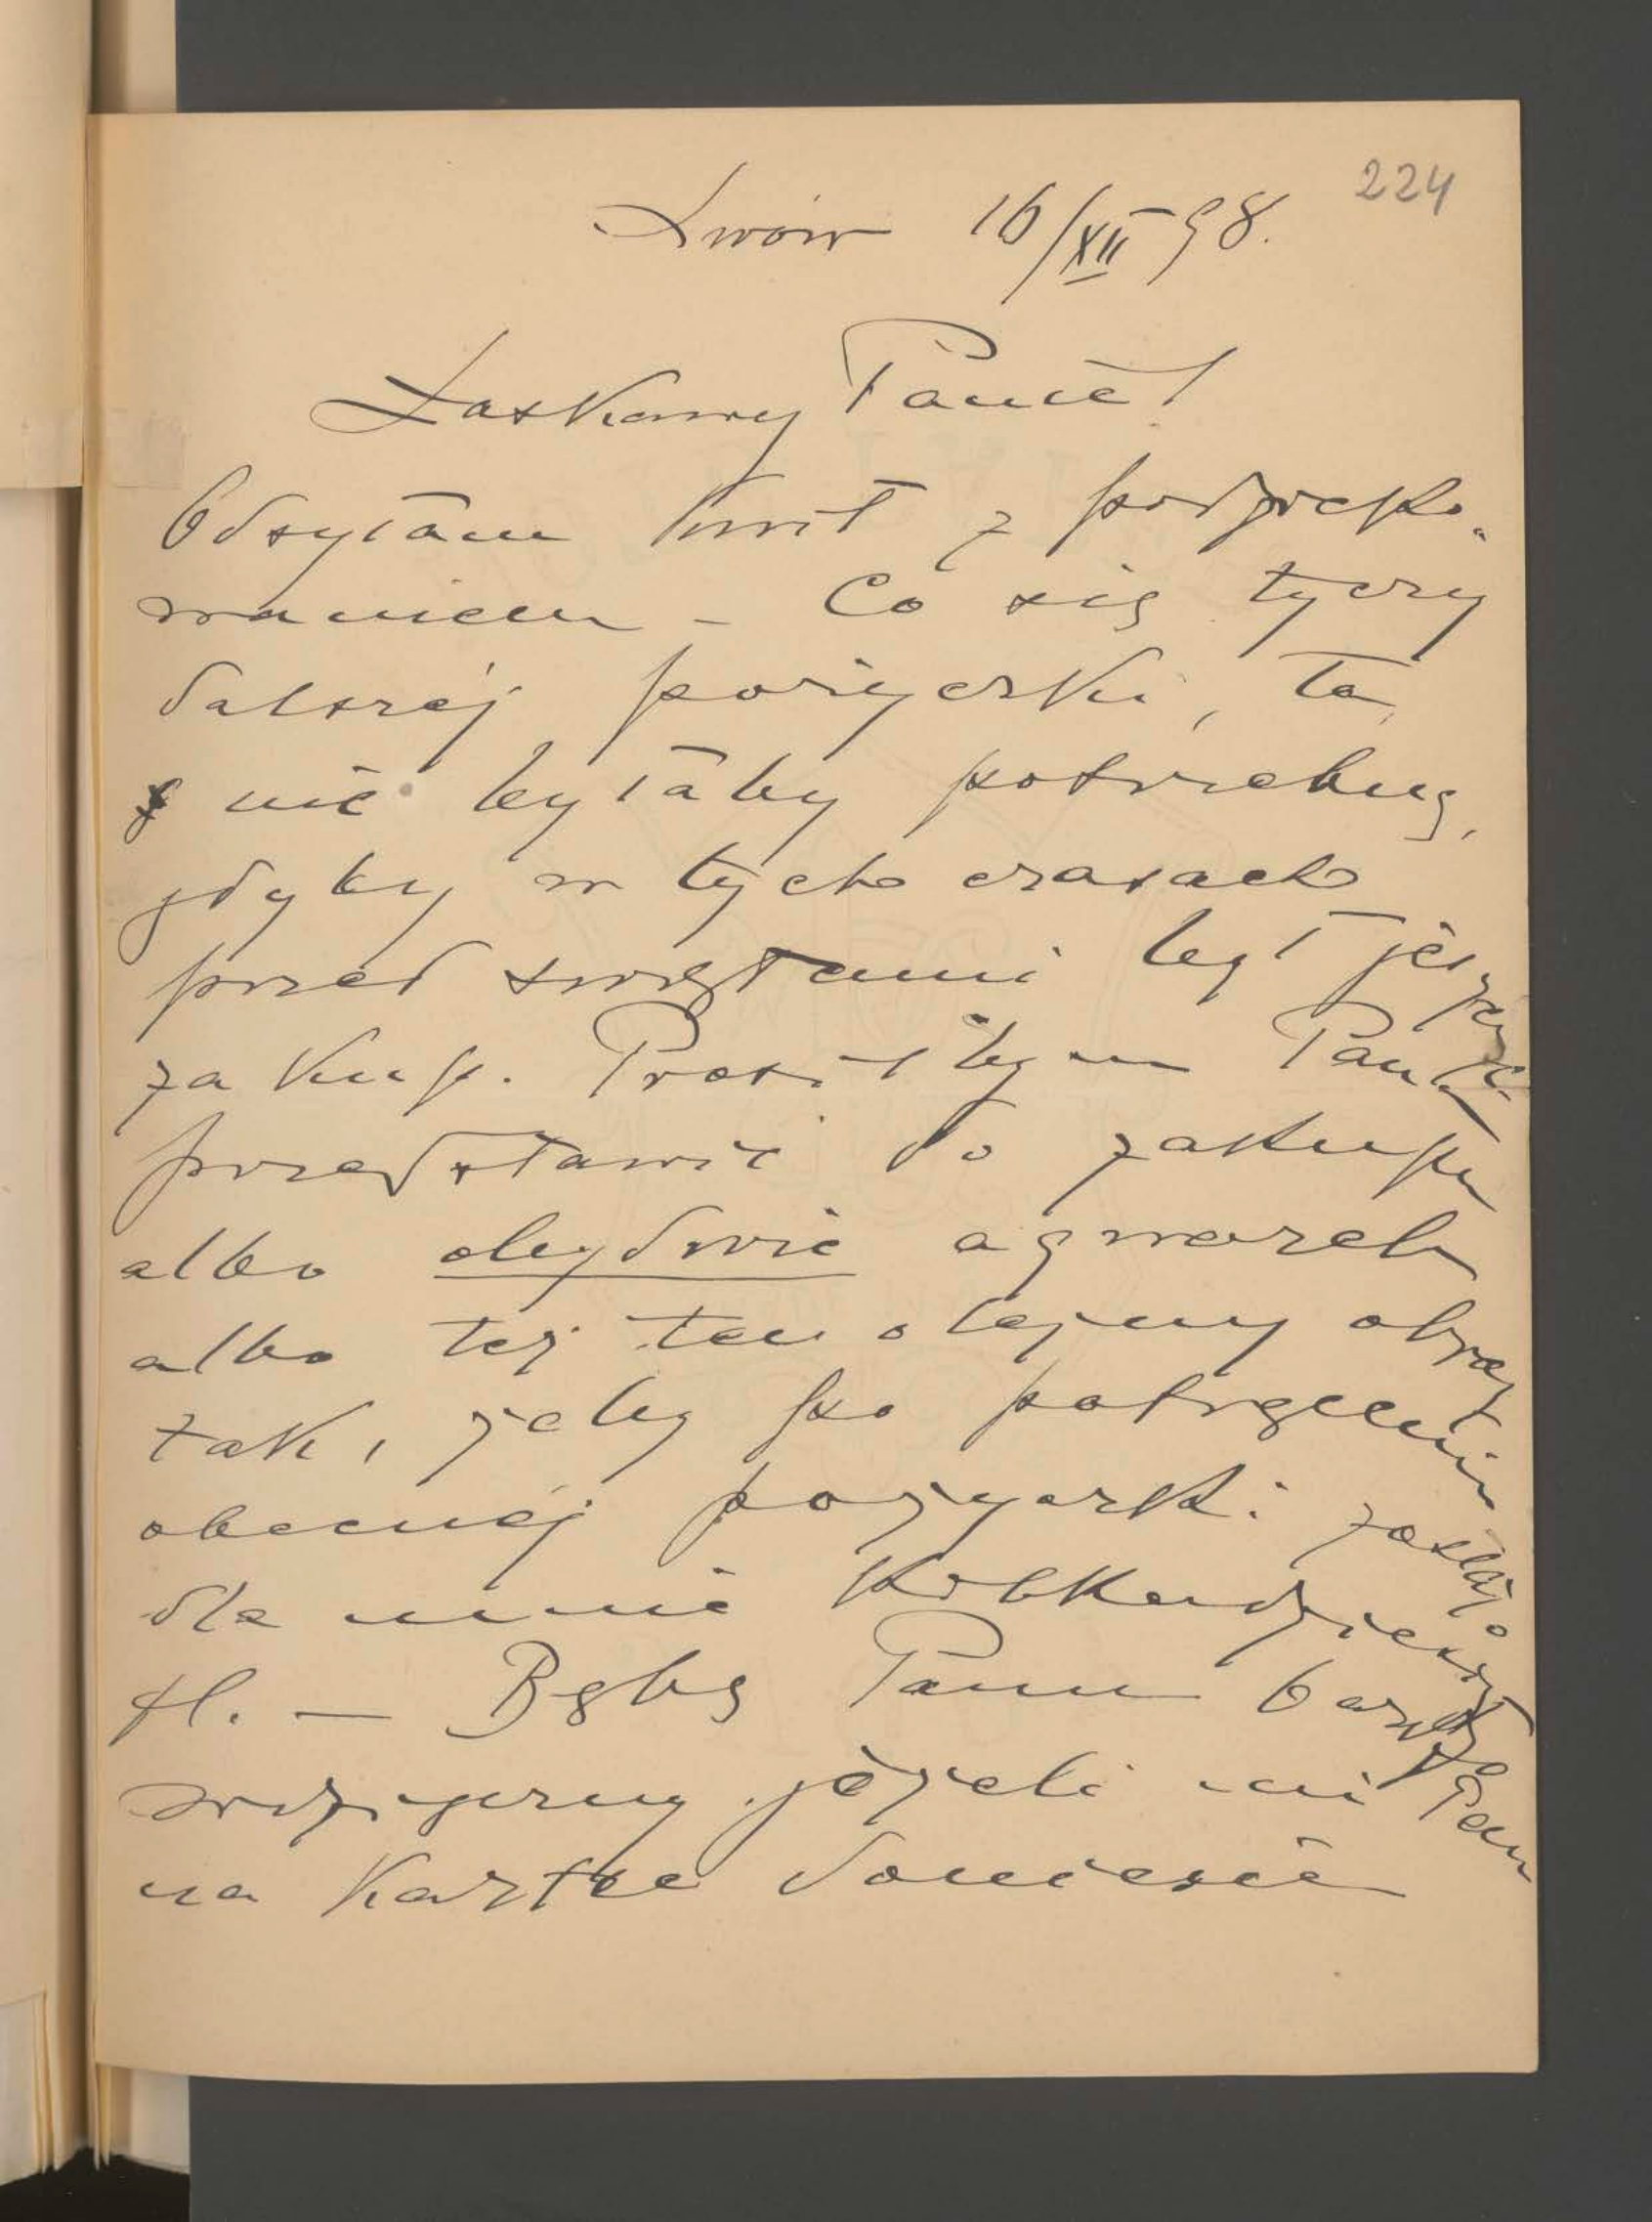 224
Lwów 16/XII 98.
Łaskawy Panie!
Odsyłam kwit z podzięko-
waniem – Co się tyczy
dalszej pożyczki, ta
nie byłaby potrzebną,
gdyby w tych czasach
przed świętami był jeszcze
zakup. Prosiłbym Pana
przedstawić do zakupu
albo obydwie aqwarele
albo też ten olejny obraz
tak, żeby po potrąceniu
obecnej pożyczki zostało
dla mnie kilkadziesiąt
fl. — Będę Panu bardzo
wdzięczny jeżeli mi Pan
na kartce doniesie